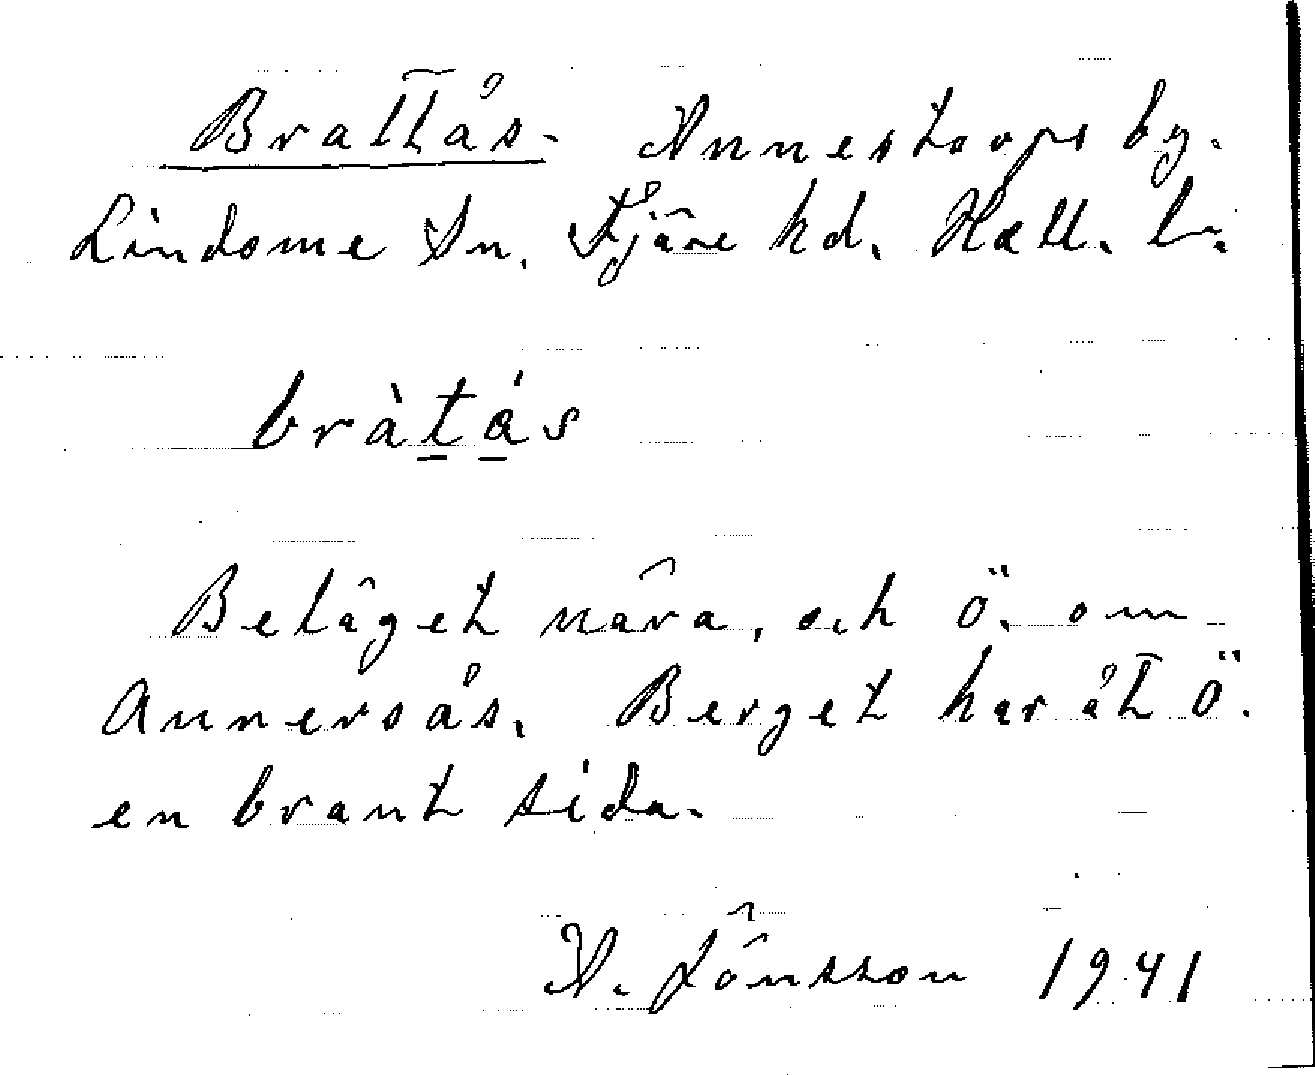 Brattås. Annestorps by.
Lindome Sn. Fjäre hd. Hall. l.
bràtás
Beläget nära, och Ö. om
Annersås. Berget har åt Ö.
en brant sida.
N. Jönsson 1941